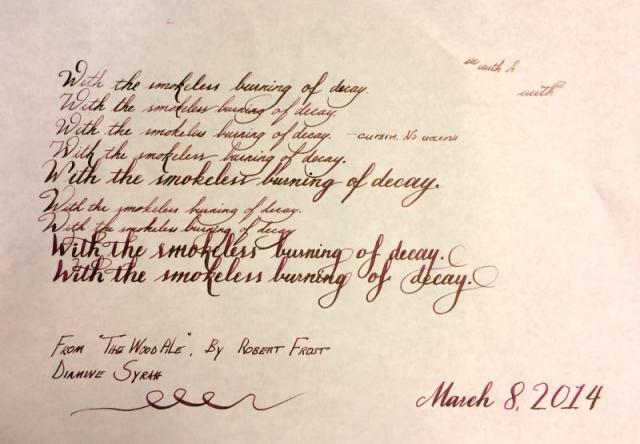 With the smokeless burning of decay.
With the smokeless burning of decay.
With the smokeless burning of decay. - cursive. No
With the smokeless burning of decay.
With the smokeless burning of decay.
With the smokeless burning of decay.
With the smokeless burning of decay
With the smokeless burning of decay.
With the smokeless burning of decay.
with h
with
From "The Wood Ale", By Robert Frost
Diamine Syrah
March 8, 2014